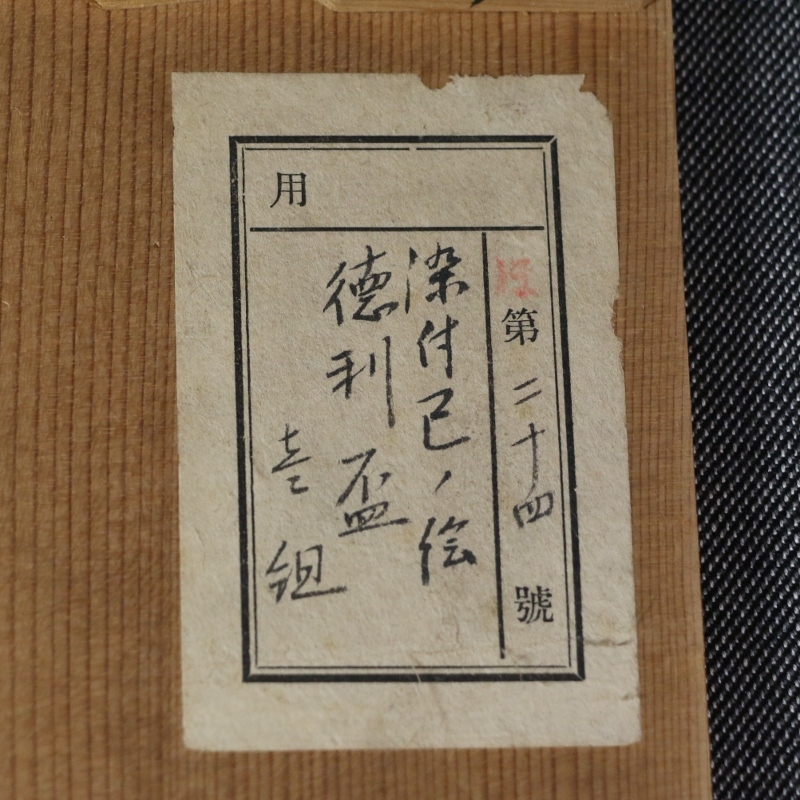 用
第二十四號
染付巳ノ絵
徳利盃
壱組